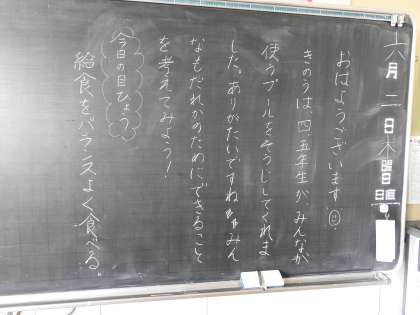 六月二日木曜日
日直
おはようございます。
きのうは、四、五年生が、みんなが
使うプールをそうじしてくれま
した。ありがたいですね。みん
なもだれかのためにできること
を考えてみよう！
今日の目ひょう
給食をバランスよく食べる。